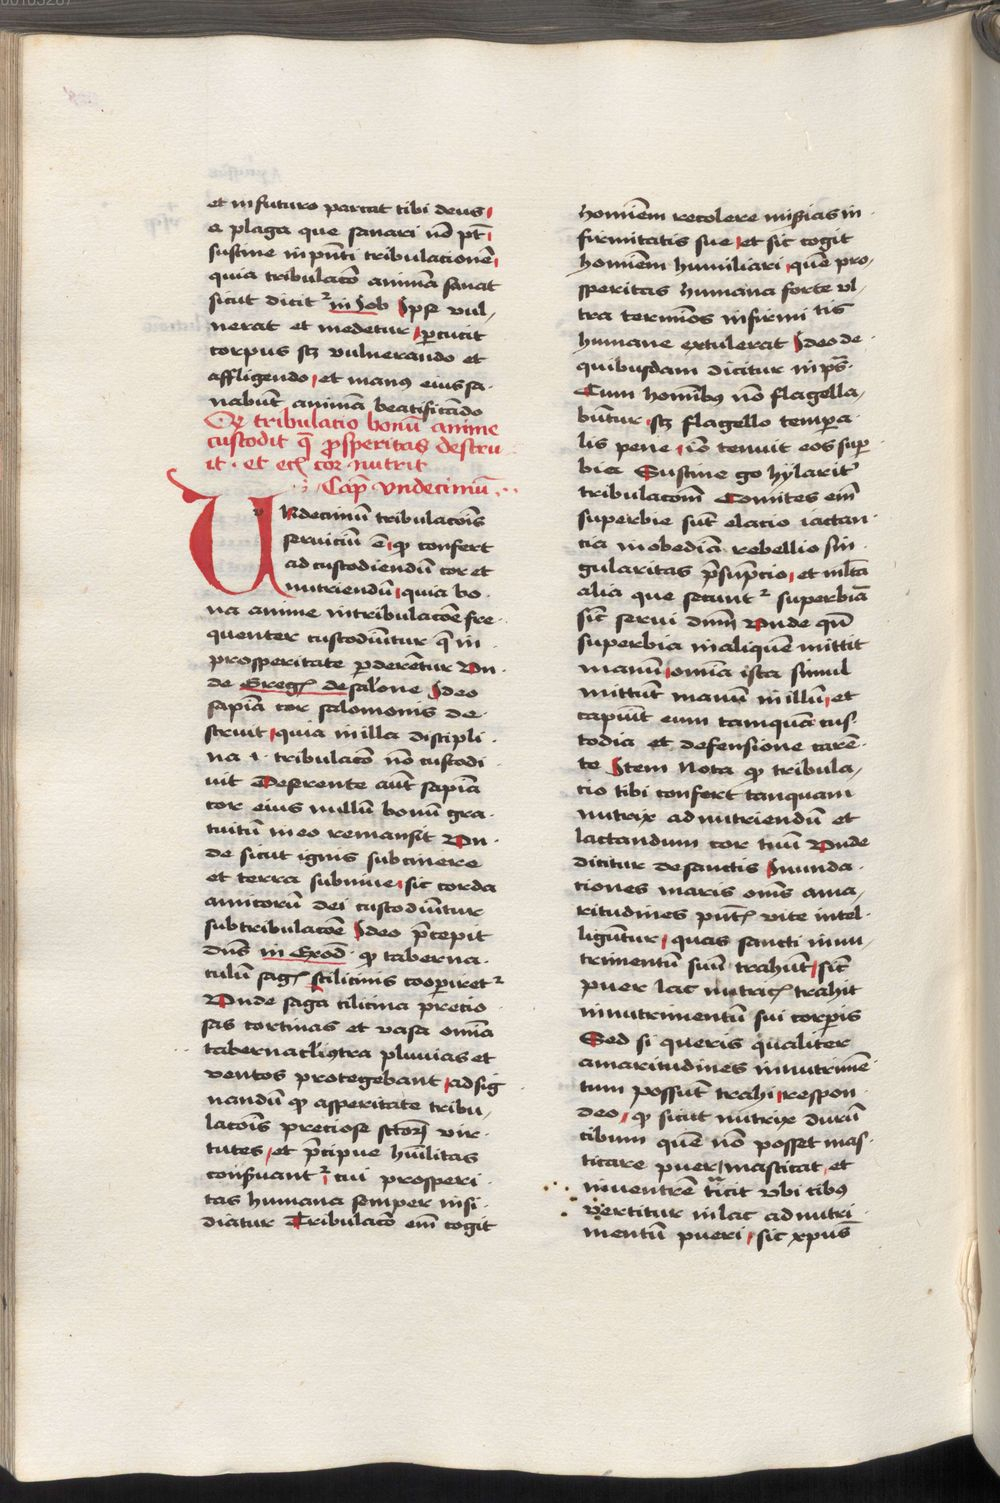 et in futuro parcat tibi deus
a plaga que sanari nō pt̄
sustine in pn̄ti tribulacionē
quia tribulacō animā sanat
sicut dicitr in Job Ipse vul,
nerat et medetur, percucit
corpus sꝫ vulnerando et
affligendo, et manꝰ eius sa-
nabūt animā beatificādo
Qꝫ tribulatio bonū anime
custodit q̄ prosperitas destru
it. et ecꝫ cor nutrit
Cap̄ Vndecimū
UNdecimū tribulacōis
seruiciū ē, ꝙ confert
ad custodiendū cor et
nutriendū, quia bo-
na anime in tribulacōe fre-
quenter custodiūtur q̄ in
prosperitate ꝑderētur Vn-
de Gregꝫ de salōne Ideo
sapīa cor salomonis de-
seruit, quia in illa discipli-
na .i. tribulacō nō custodi-
uit Deserente aūt sapīa
cor eius nullū bonū gra-
tuitū in eo remansit Vn-
de sicut ignis sub cinere
et terra sub niue, sic corda
amicorū dei custodiūtur
sub tribulacōe Ideo p̄cepit
dn̄s in Exod̄ ꝙ taberna-
culū sagꝫ cilicinis cooperiretr
Vnde saga cilicina precio-
sas cortinas et vasa omīa
tabernacl̄i ꝯtra pluuias et
ventos protegebant, ad sig
nandū ꝙ asperitate tribu,
lacōis preciose sctōꝝ vir-
tutes, et p̄cipue hūilitas
conseruantr, cui prosperi-
tas humana semper insi-
diatur Tribulacō em̄ cogit
homīem recolere miserias in-
firmitatis sue, et sic cogit
homīem humiliari, quē pro,
speritas humana forte vl,
tra termīos infirmitatis
humane extulerat Ideo de-
quibusdam dicitur in ps̄.
Cum homībꝰ nō flagella,
būtur, sꝫ flagello tempora-
lis pene, iō tenuit eos super
bia Sustine go hylariter
tribulacōm Comites em̄
superbie sūt elacio iactan-
cia inobediā rebellio sin-
gularitas p̄sūpcio, et ml̄ta
alia que secuntr superbiā
sic̄ serui dn̄m Vnde qn̄
superbia in aliquē mittit
manū, omīa ista simul
mittūt manū in illū, et
capiūt eum tamquā cus,
todia et defensione carē-
te Item Nota ꝙ tribula,
cio tibi confert tanquam
nutrix ad nutriendū et
lactandum cor tuū Vnde
dicitur de sanctis Inunda-
ciones maris om̄s ama,
ritudines pn̄tꝫ vite intel-
ligūtur, quas sancti in nu,
trimentū suū trahūt, sic̄
puer lac nutricꝫ trahit
in nutrimentū sui corporis
Sed si queris qualiter
amaritudines in nutrimē-
tum possūt trahi, respon-
deo, ꝙ sicut nutrix durū
cibum quē nō posset mas-
ticare puer, masticat, et
in uentrē traicit vbi cibꝰ
vertitur in lac ad nutri-
mentū pueri, sic xpūs